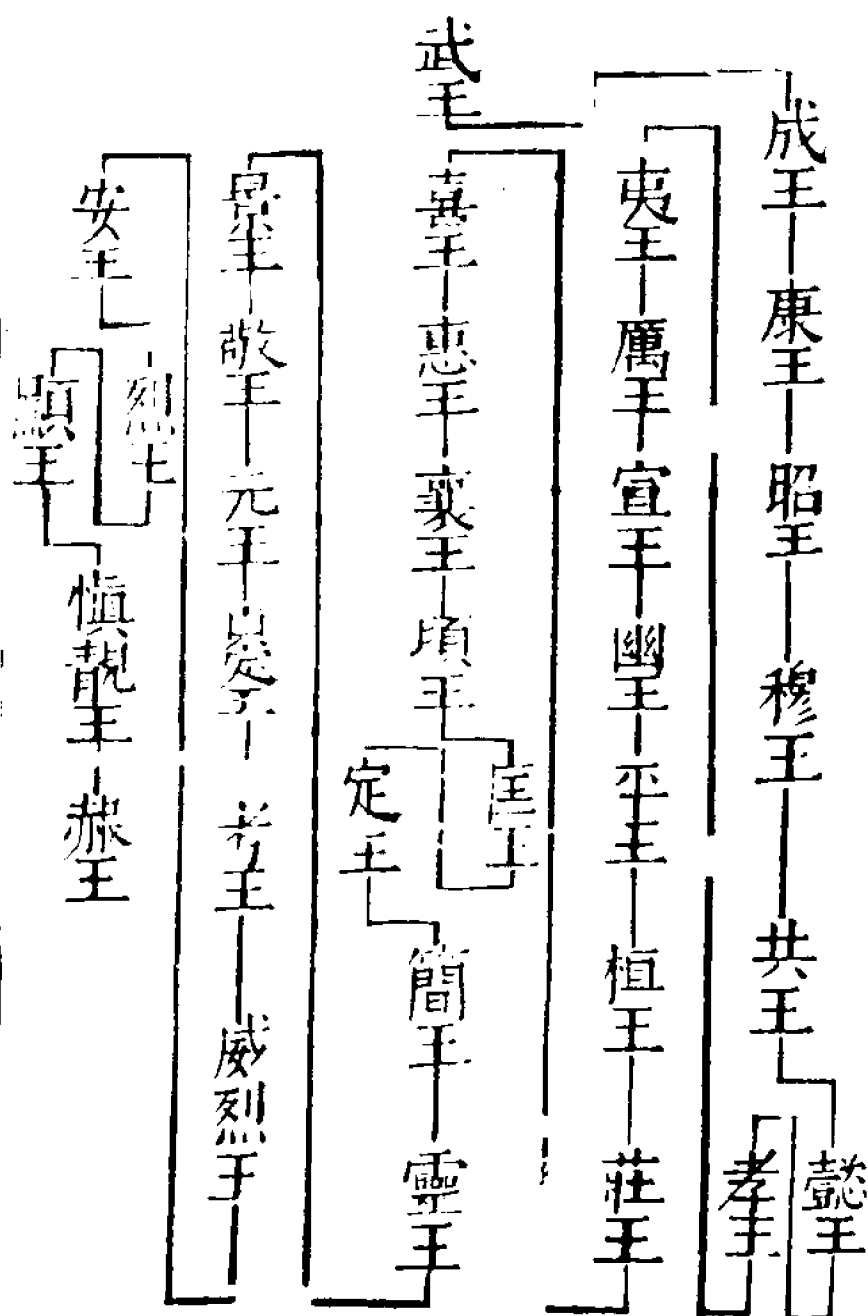 武王
成王
康王
昭王
穆王
共王
懿王
孝王
夷王
厲王
宣王
幽王
平王
桓王
莊王
惠王
襄王
頃王
匡王
定王
簡王
靈王
景王
敬王
元王
考王
威烈王
安王
烈王
顯王
愼靚王
赧王